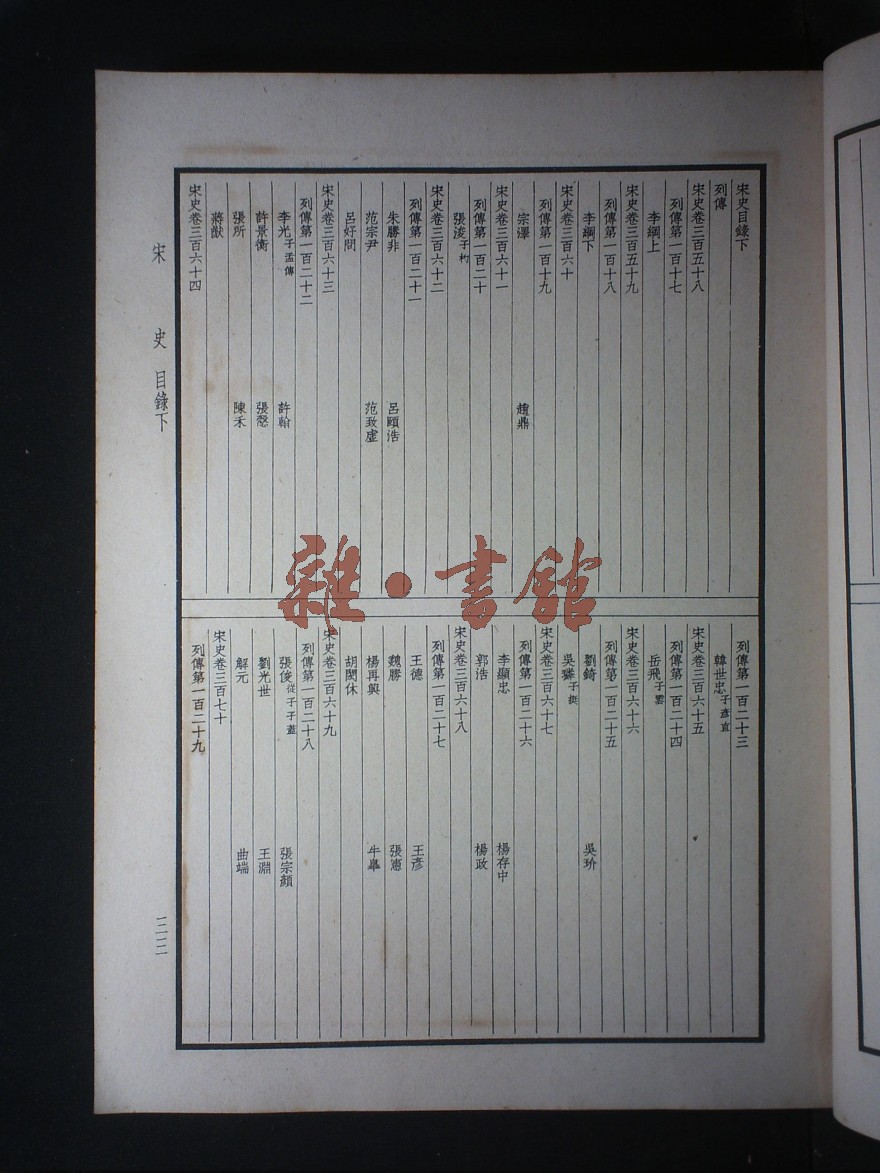 宋史目錄下
列傳
宋史卷三百五十八
列傳第一百十七
李綱上
宋史卷三百五十九
列傳第一百十八
李綱下
宋史卷三百六十
列傳第一百十九
宗澤 趙鼎
宋史卷三百六十一
列傳第一百二十
張浚子枃
宋史卷三百六十二
列傳第一百二十一
朱勝非 呂頤浩
范宗尹 范致虛
呂好問
宋史卷三百六十三
列傳第一百二十二
李光子孟傳 許翰
許景衡 張愨
張所 陳禾
蔣猷
宋史卷三百六十四
列傳第一百二十三
韓世忠子彥直
宋史卷三百六十五
列傳第一百二十四
岳飛子雲
宋史卷三百六十六
列傳第一百二十五
劉錡 吳玠
吳璘子挺
宋史卷三百六十七
列傳第一百二十六
李顯忠 楊存中
郭浩 楊政
宋史卷三百六十八
列傳第一百二十七
王德 王彥
魏勝 張憲
楊再興 牛皋
胡閎休
宋史卷三百六十九
列傳第一百二十八
張俊從子子蓋 張宗顏
劉光世 王淵
解元 曲端
宋史卷三百七十
列傳第一百二十九
宋史 目錄下
三三
雜·書館